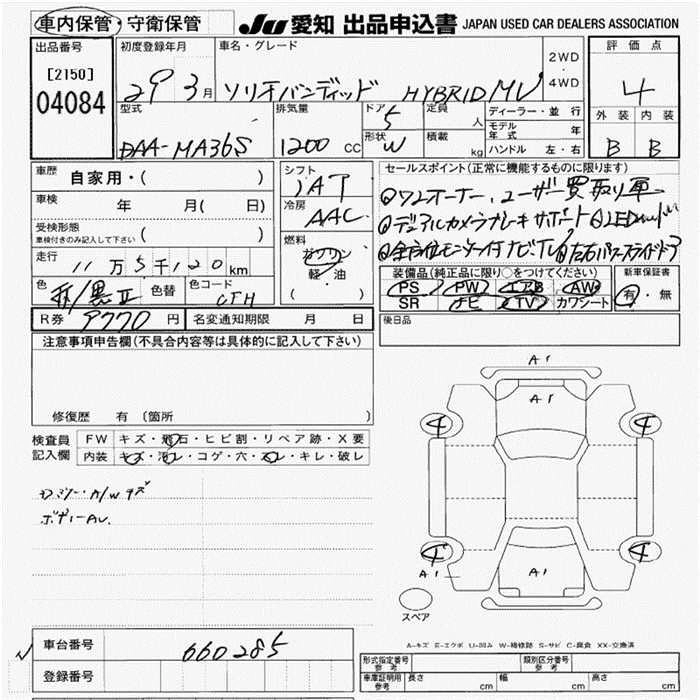 車内保管・守衛保管
JU 愛知 出品申込書 JAPAN USED CAR DEALERS ASSOCIATION
出品番号
[2150]
04084
初度登録年月
29 3月
車名・グレード
ソリオバンディット HYBRID MV
2WD
4WD
評価点
4
外装 内装
B B
型式
DAA-MA36S
排気量
1200 CC
ドア 5
形状 W
定員 人
積載 kg
ディーラー・並行
モデル年式 年
ハンドル 左・右
車歴 自家用・( )
車検 年 月( 日)
受検形態
車検付きのみ記入して下さい ( )
走行 11万5千120km
色 赤/黒II 色替
色コード CFH
シフト
IAT
冷房
AAC
燃料
ガソリン
軽・油
( )
セールスポイント(正常に機能するものに限ります)
①ワンオーナー、ユーザー買取り車
②デュアルカメラブレーキサポート ③LED
④全方位モニター付ナビTV
装備品(純正品に限り○をつけてください)
PS PW エアB AW
SR ナビ TV カワシート
新車保証書
有・無
後日品
R券 9770円 名変通知期限 月 日
注意事項申告欄(不具合内容等は具体的に記入して下さい)
修復歴 有 〔箇所 〕
検査員記入欄
FW キズ・飛石・ヒビ割・リペア跡・X要
内装 キズ・汚レ・コゲ・穴・スレ・キレ・破レ
A/Wキズ
ボディーAU
A1
A1
4 4
4 4
A1
A1
スペア
A-キズ E-エクボ U-凹み W-補修跡 S-サビ C-腐食 XX-交換済
車台番号 660285
登録番号
形式指定番号 参考
類別区分番号 参考
車庫証明用 参考 長さ cm 幅 cm 高さ cm